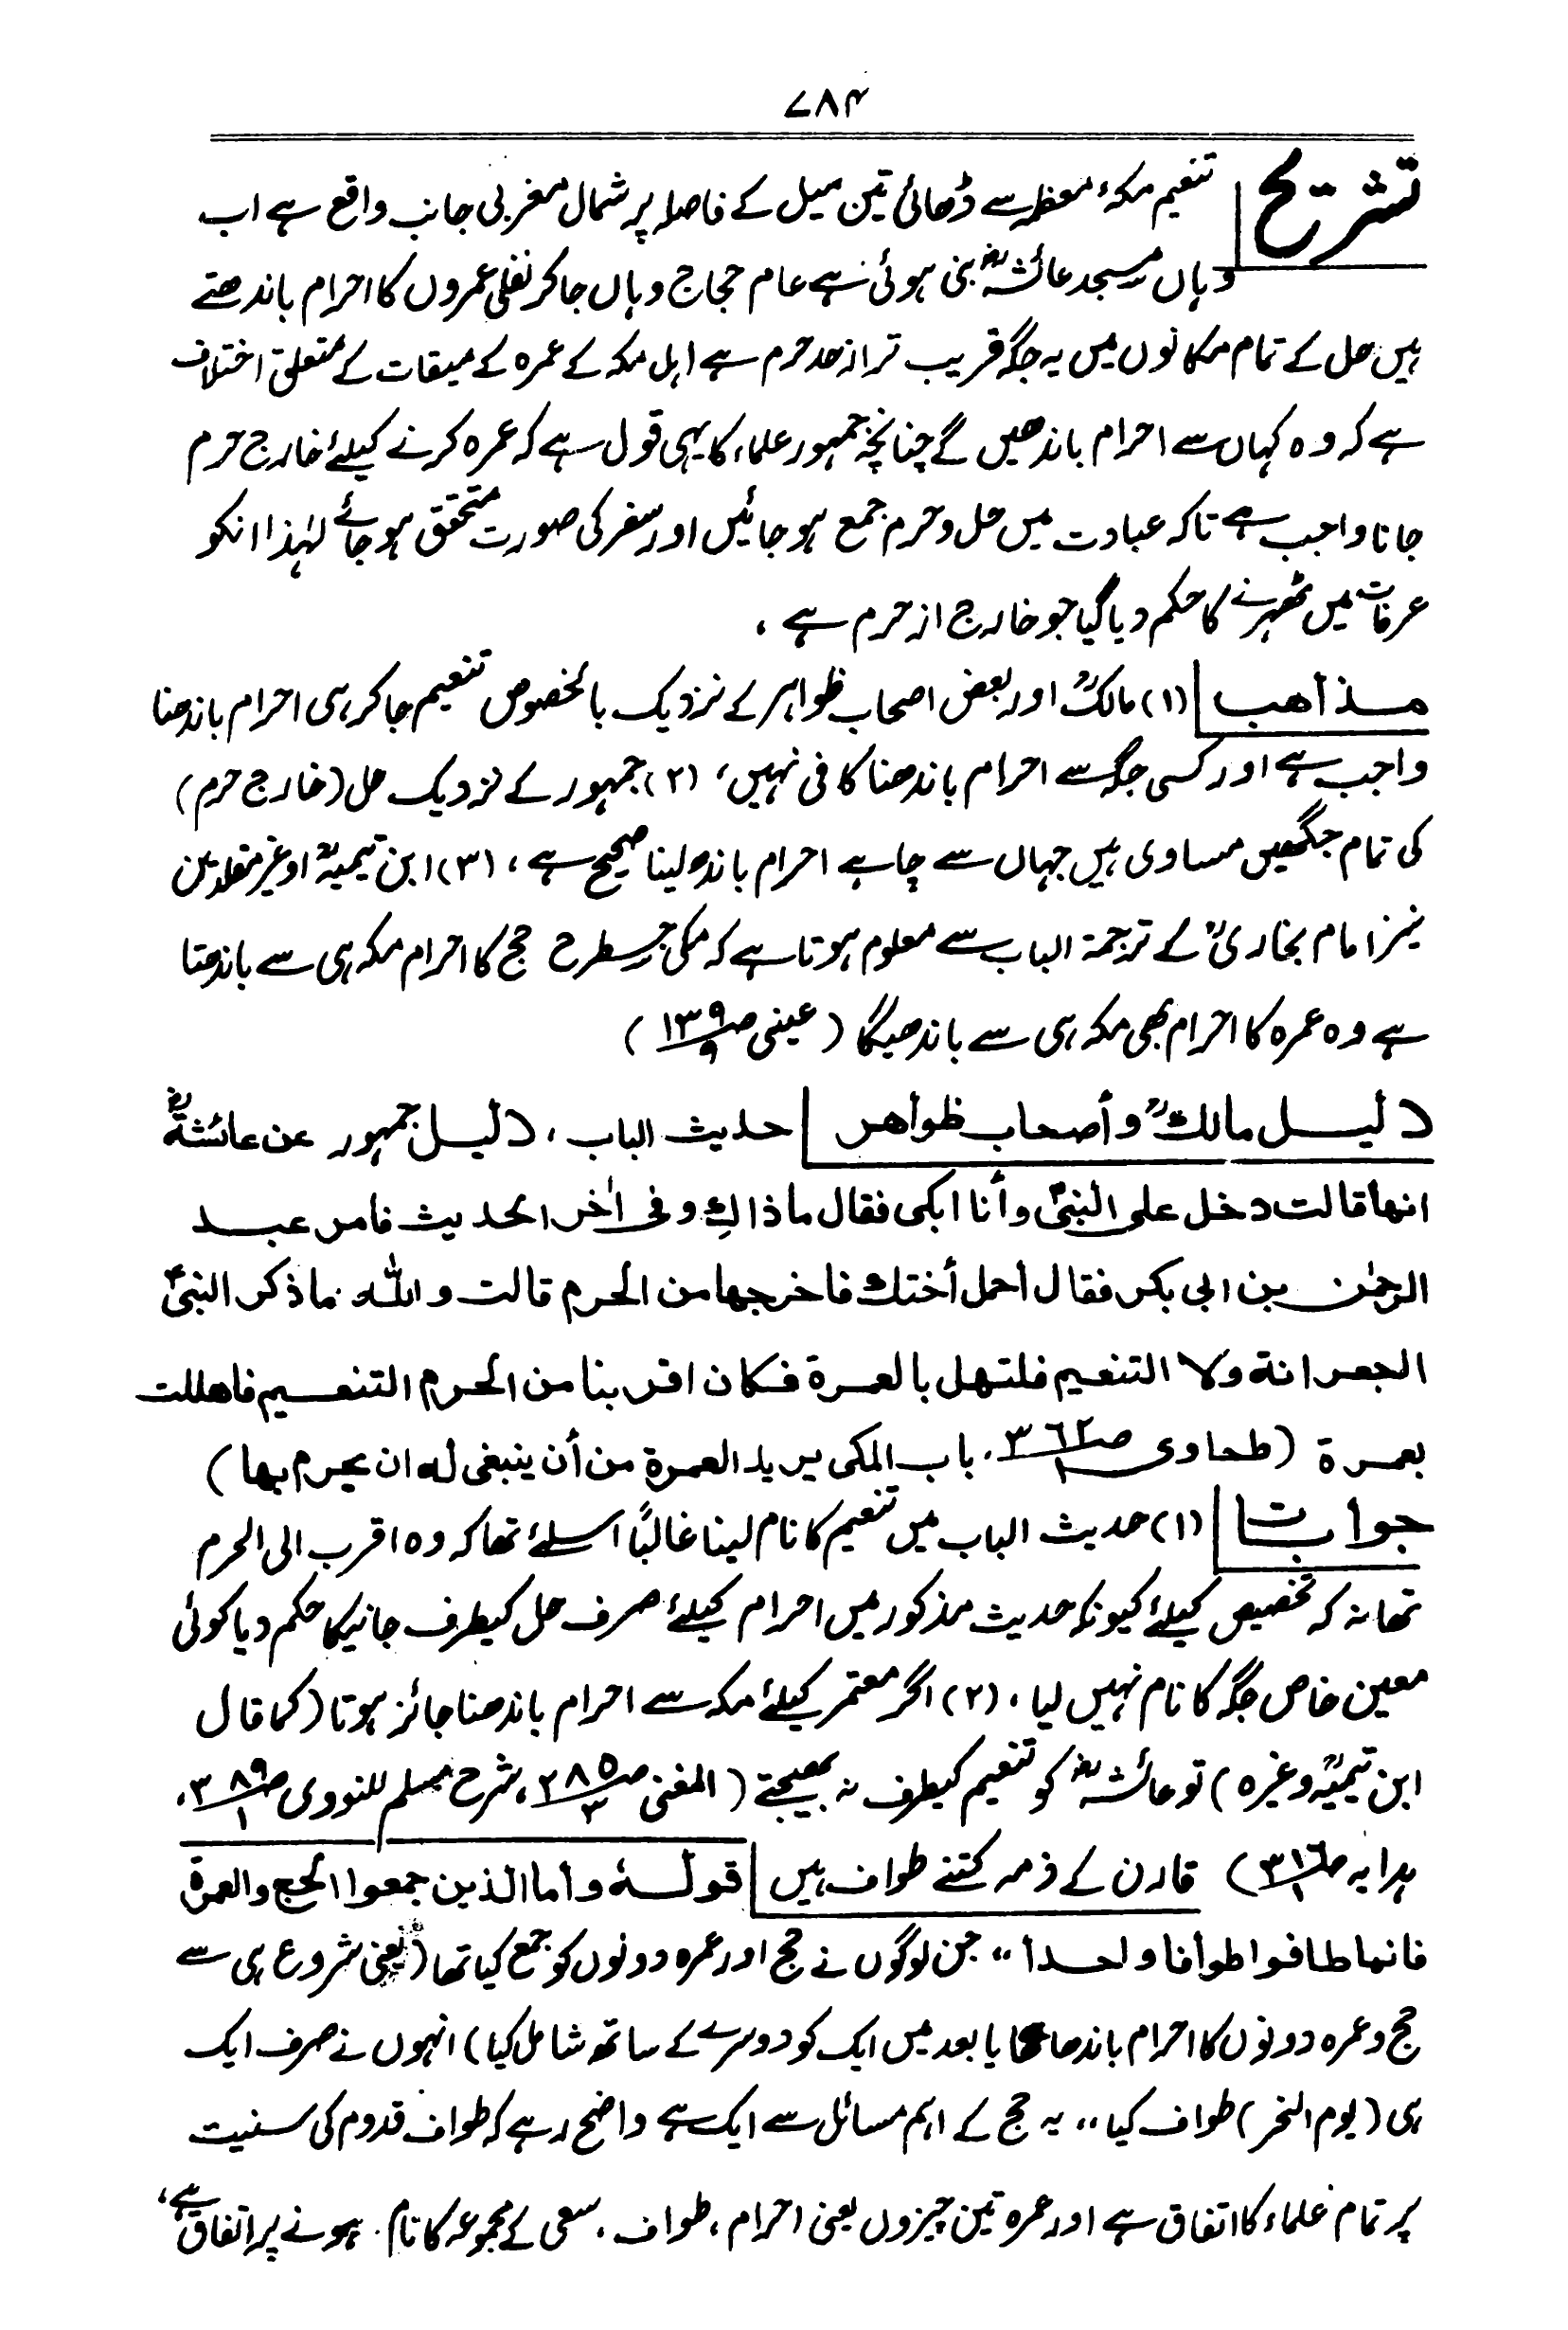 ۷۸۴
تشریح تنعیم مکۂ معظمہ سے ڈھائی تین میل کے فاصلہ پر شمال مغربی جانب واقع ہے اب
وہاں مسجد عائشہؓ بنی ہوئی ہے عام حجاج وہاں جاکر نفلی عمروں کا احرام باندھتے
ہیں حل کے تمام مکانوں میں یہ جگہ قریب تر از حد حرم ہے اہل مکہ کے عمرہ کے میقات کے متعلق اختلاف
ہے کہ وہ کہاں سے احرام باندھیں گے چنانچہ جمہور علماء کا یہی قول ہے کہ عمرہ کرنے کیلئے خارج حرم
جانا واجب ہے تاکہ عبادت میں حل وحرم جمع ہوجائیں اور سفر کی صورت متحقق ہوجائے لہٰذا انکو
عرفات میں ٹھہرنے کا حکم دیا گیا جو خارج از حرم ہے ،
مذاهب (۱) مالکؒ اور بعض اصحاب ظواہر کے نزدیک بالخصوص تنعیم جاکر ہی احرام باندھنا
واجب ہے اور کسی جگہ سے احرام باندھنا کافی نہیں، (۲) جمہور کے نزدیک حل (خارج حرم)
کی تمام جگہیں مساوی ہیں جہاں سے چاہے احرام باندھ لینا صحیح ہے، (۳) ابن تیمیہؒ اور غیر مقلدین
نیز امام بخاریؒ کے ترجمۃ الباب سے معلوم ہوتا ہے کہ مکی جسطرح حج کا احرام مکہ ہی سے باندھتا
ہے وہ عمرہ کا احرام بھی مکہ ہی سے باندھیگا (عینی ص۱۳۹/۹)
دلیل مالكؒ وأصحاب ظواهر حدیث الباب، دلیل جمہور عن عائشةؓ
انها قالت دخل علی النبیؐ وأنا ابکی فقال ماذاكِ وفی اٰخر الحدیث فامر عبد
الرحمٰن بن ابی بکر فقال احمل أختك فاخرجها من الحرم قالت والله ماذکر النبیؐ
الجعرانة ولا التنعیم فلتهل بالعمرة فکان اقربنا من الحرم التنعیم فاهللت
بعمرة (طحاوی ص۳۶۲/۱، باب المکی یرید العمرة من أن ینبغی له ان یحرم بها)
جوابات (۱) حدیث الباب میں تنعیم کا نام لینا غالبًا اسلئے تھا کہ وہ اقرب الی الحرم
تھا نہ کہ تخصیص کیلئے کیونکہ حدیث مذکور میں احرام کیلئے صرف حل کیطرف جانیکا حکم دیا کوئی
معین خاص جگہ کا نام نہیں لیا، (۲) اگر معتمر کیلئے مکہ سے احرام باندھنا جائز ہوتا (کما قال
ابن تیمیہؒ وغیرہ) تو عائشہؓ کو تنعیم کیطرف نہ بھیجتے (المغنی ص۲۸۵/۳، شرح مسلم للنووی ص۳۸۹/۱،
ہدایہ ص۳۱۶/۱) قارن کے ذمہ کتنے طواف ہیں قولہٗ وأما الذین جمعوا الحج والعمرة
فانما طافوا طوافا واحدا ،، جن لوگوں نے حج اور عمرہ دونوں کو جمع کیا تھا (یعنی شروع ہی سے
حج وعمرہ دونوں کا احرام باندھا تھا یا بعد میں ایک کو دوسرے کے ساتھ شامل کیا) انہوں نے صرف ایک
ہی (یوم النحر) طواف کیا ،، یہ حج کے اہم مسائل سے ایک ہے واضح رہے کہ طواف قدوم کی سنیت
پر تمام علماء کا اتفاق ہے اور عمرہ تین چیزوں یعنی احرام، طواف، سعی کے مجموعہ کا نام ہونے پر اتفاق ہے،